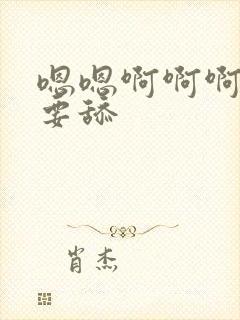 嗯嗯啊啊啊
要舔
肖杰